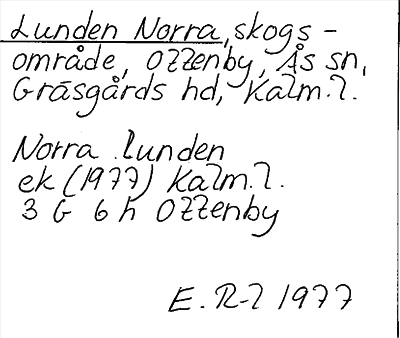 Lunden Norra, skogs-
område, Ottenby, Ås sn,
Gräsgårds hd, Kalm.l.
Norra Lunden
ek (1977) Kalm.l.
3 G 6 h Ottenby
E. R-l 1977